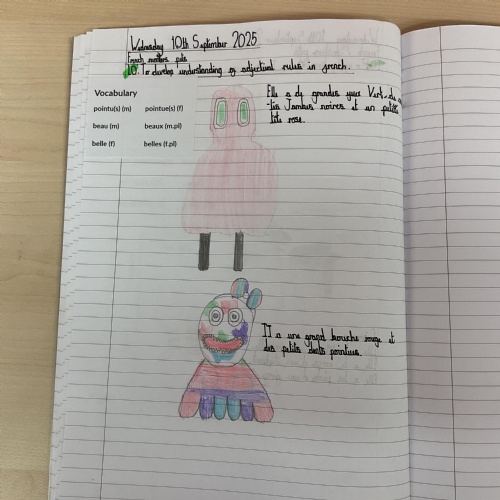 Wednesday 10th September 2025
French monsters pets
LO. To develop understanding of adjectival rules in french.
Vocabulary
pointu(s) (m) pointue(s) (f)
beau (m) beaux (m.pl)
belle (f) belles (f.pl)
Elle a de grandes yeux Verts,
Jambes noires et un petite
tete rose.
Il a une grand bouche rouge et
des petits dents pointues.